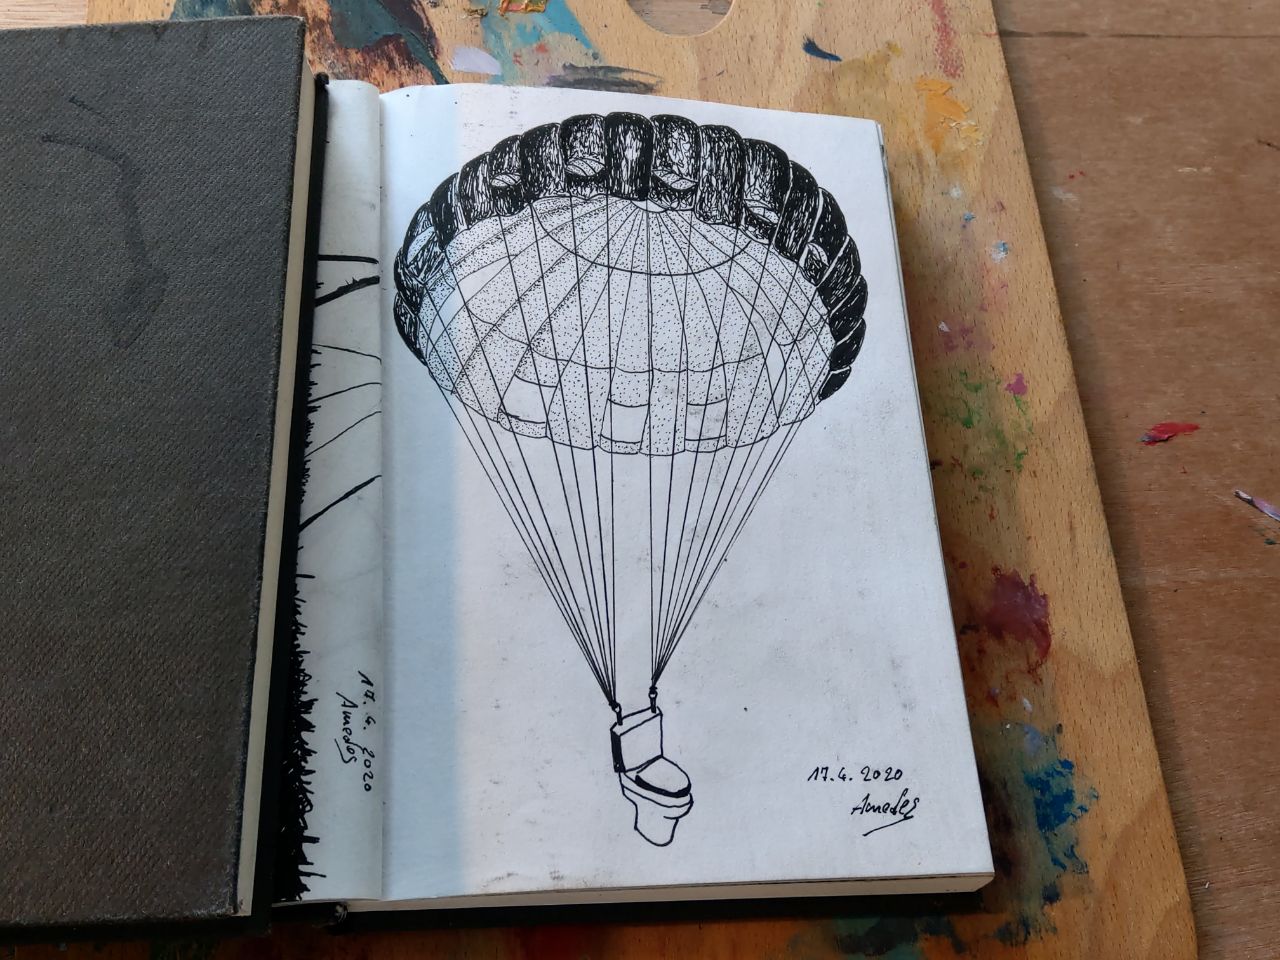 17.4.2020
Amedes
17.4.2020
Amedes